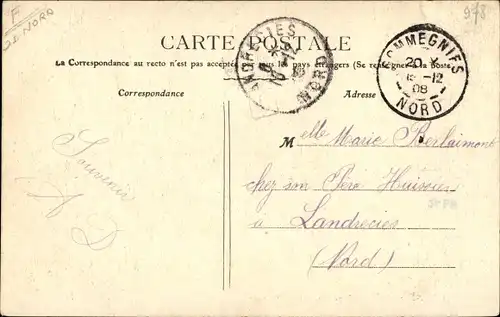 F
59 NORD
978
CARTE POSTALE
La Correspondance au recto n'est pas acceptée par tous les pays étrangers (Se renseigner à la Poste)
Correspondance
Adresse
LANDRECIES
NORD
POMMEGNIES
20
15-12
08
NORD
Melle Marie Berlaimont
chez son Père Huissier
à Landrecies
(Nord)
Souvenir
A D